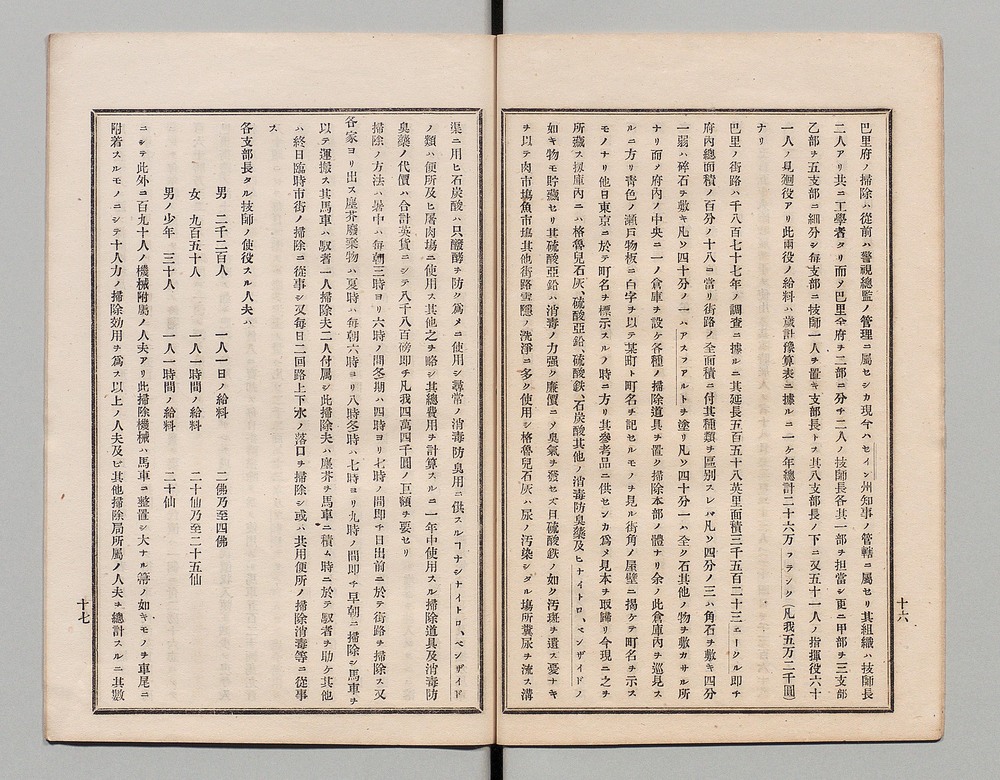 巴里府ノ掃除ハ從前ハ警視總監ノ管理ニ屬セシカ現今ハセイン州知事ノ管轄ニ屬セリ其組織ハ技師長
二人アリ共ニ工學者タリ而ノ巴里全府ヲ二部ニ分チ二人ノ技師長各其一部ヲ担當シ更ニ甲部ヲ三支部
乙部ヲ五支部ニ細分シ毎支部ニ技師一人ヲ置キ支部長トス其八支部長ノ下ニ又五十一人ノ指揮役六十
一人ノ見廻役アリ此兩役ノ給料ハ歳計豫算表ニ據ルニ一ケ年總計二十六万フランク(凡我五万二千圓)
ナリ
巴里ノ街路ハ千八百七十七年ノ調査ニ據ルニ其延長五百五十八英里面積三千五百二十三エークル即チ
府內總面積ノ百分ノ十八ニ當リ街路ノ全面積ニ付其種類ヲ區別スレハ凡ソ四分ノ三ハ角石ヲ敷キ四分
一弱ハ碎石ヲ敷キ凡ソ四十分ノ一ハアスファルトヲ塗リ凡ソ四十分一ハ全ク石其他ノ物ヲ敷カサル所
ナリ而ノ府內ノ中央ニ一ノ倉庫ヲ設ケ各種ノ掃除道具ヲ置ク掃除本部ノ體ナリ余ノ此倉庫內ヲ巡見ス
ルニ方リ青色ノ瀬戸物板ニ白字ヲ以テ某町ト町名ヲ記セルモノヲ見ル街角ノ屋壁ニ揭ケテ町名ヲ示ス
モノナリ他日東京ニ於テ町名ヲ標示スルノ時ニ方リ其參考品ニ供センカ爲メ見本ヲ取歸リ今現ニ之ヲ
所藏ス扨庫內ニハ格魯兒石灰、硫酸亞鉛、硫酸鉄、石炭酸其他ノ消毒防臭藥及ヒナイトロ、ベンザイドノ
如キ物モ貯藏セリ其硫酸亞鉛ハ消毒ノ力强ク廉價ニノ臭氣ヲ發セズ且硫酸鉄ノ如ク汚斑ヲ遺ス憂ナキ
ヲ以テ肉市塲魚市塲其他街路雪隱ノ洗淨ニ多ク使用シ格魯兒石灰ハ尿ノ汚染シタル塲所糞尿ヲ流ス溝
十六
渠ニ用ヒ石炭酸ハ只醱酵ヲ防ク爲メニ使用シ尋常ノ消毒防臭用ニ供スルヿナシナイトロ、ベンザイド
ノ類ハ便所及ヒ屠肉塲ニ使用ス其他之ヲ略シ其總費用ヲ計算スルニ一年中使用スル掃除道具及消毒防
臭藥ノ代價ハ合計英貨ニシテ八千八百磅即チ凡我四萬四千圓ノ巨額ヲ要セリ
掃除ノ方法ハ暑中ハ毎朝三時ヨリ六時ノ間冬期ハ四時ヨリ七時ノ間即チ日出前ニ於テ街路ヲ掃除ス又
各家ヨリ出ス塵芥廢棄物ハ夏時ハ毎朝六時ヨリ八時冬時ハ七時ヨリ九時ノ間即チ早朝ニ掃除シ馬車ヲ
以テ運搬ス其馬車ハ馭者一人掃除夫二人付屬シ此掃除夫ハ塵芥ヲ馬車ニ積ム時ニ於テ馭者ヲ助ケ其他
ハ終日臨時市街ノ掃除ニ從事シ又毎日二回路上下水ノ落口ヲ掃除シ或ハ共用便所ノ掃除消毒等ニ從事
ス
各支部長タル技師ノ使役スル人夫ハ
男 二千二百人 一人一日ノ給料 二佛乃至四佛
女 九百五十人 一人一時間ノ給料 二十仙乃至二十五仙
男ノ少年 三十人 一人一時間ノ給料 二十仙
ニシテ此外ニ百九十人ノ機械附屬ノ人夫アリ此掃除機械ハ馬車ニ整置シ大ナル箒ノ如キモノヲ車尾ニ
附着スルモノニシテ十人力ノ掃除効用ヲ爲ス以上ノ人夫及ビ其他掃除局所屬ノ人夫ヲ總計スルニ其數
十七